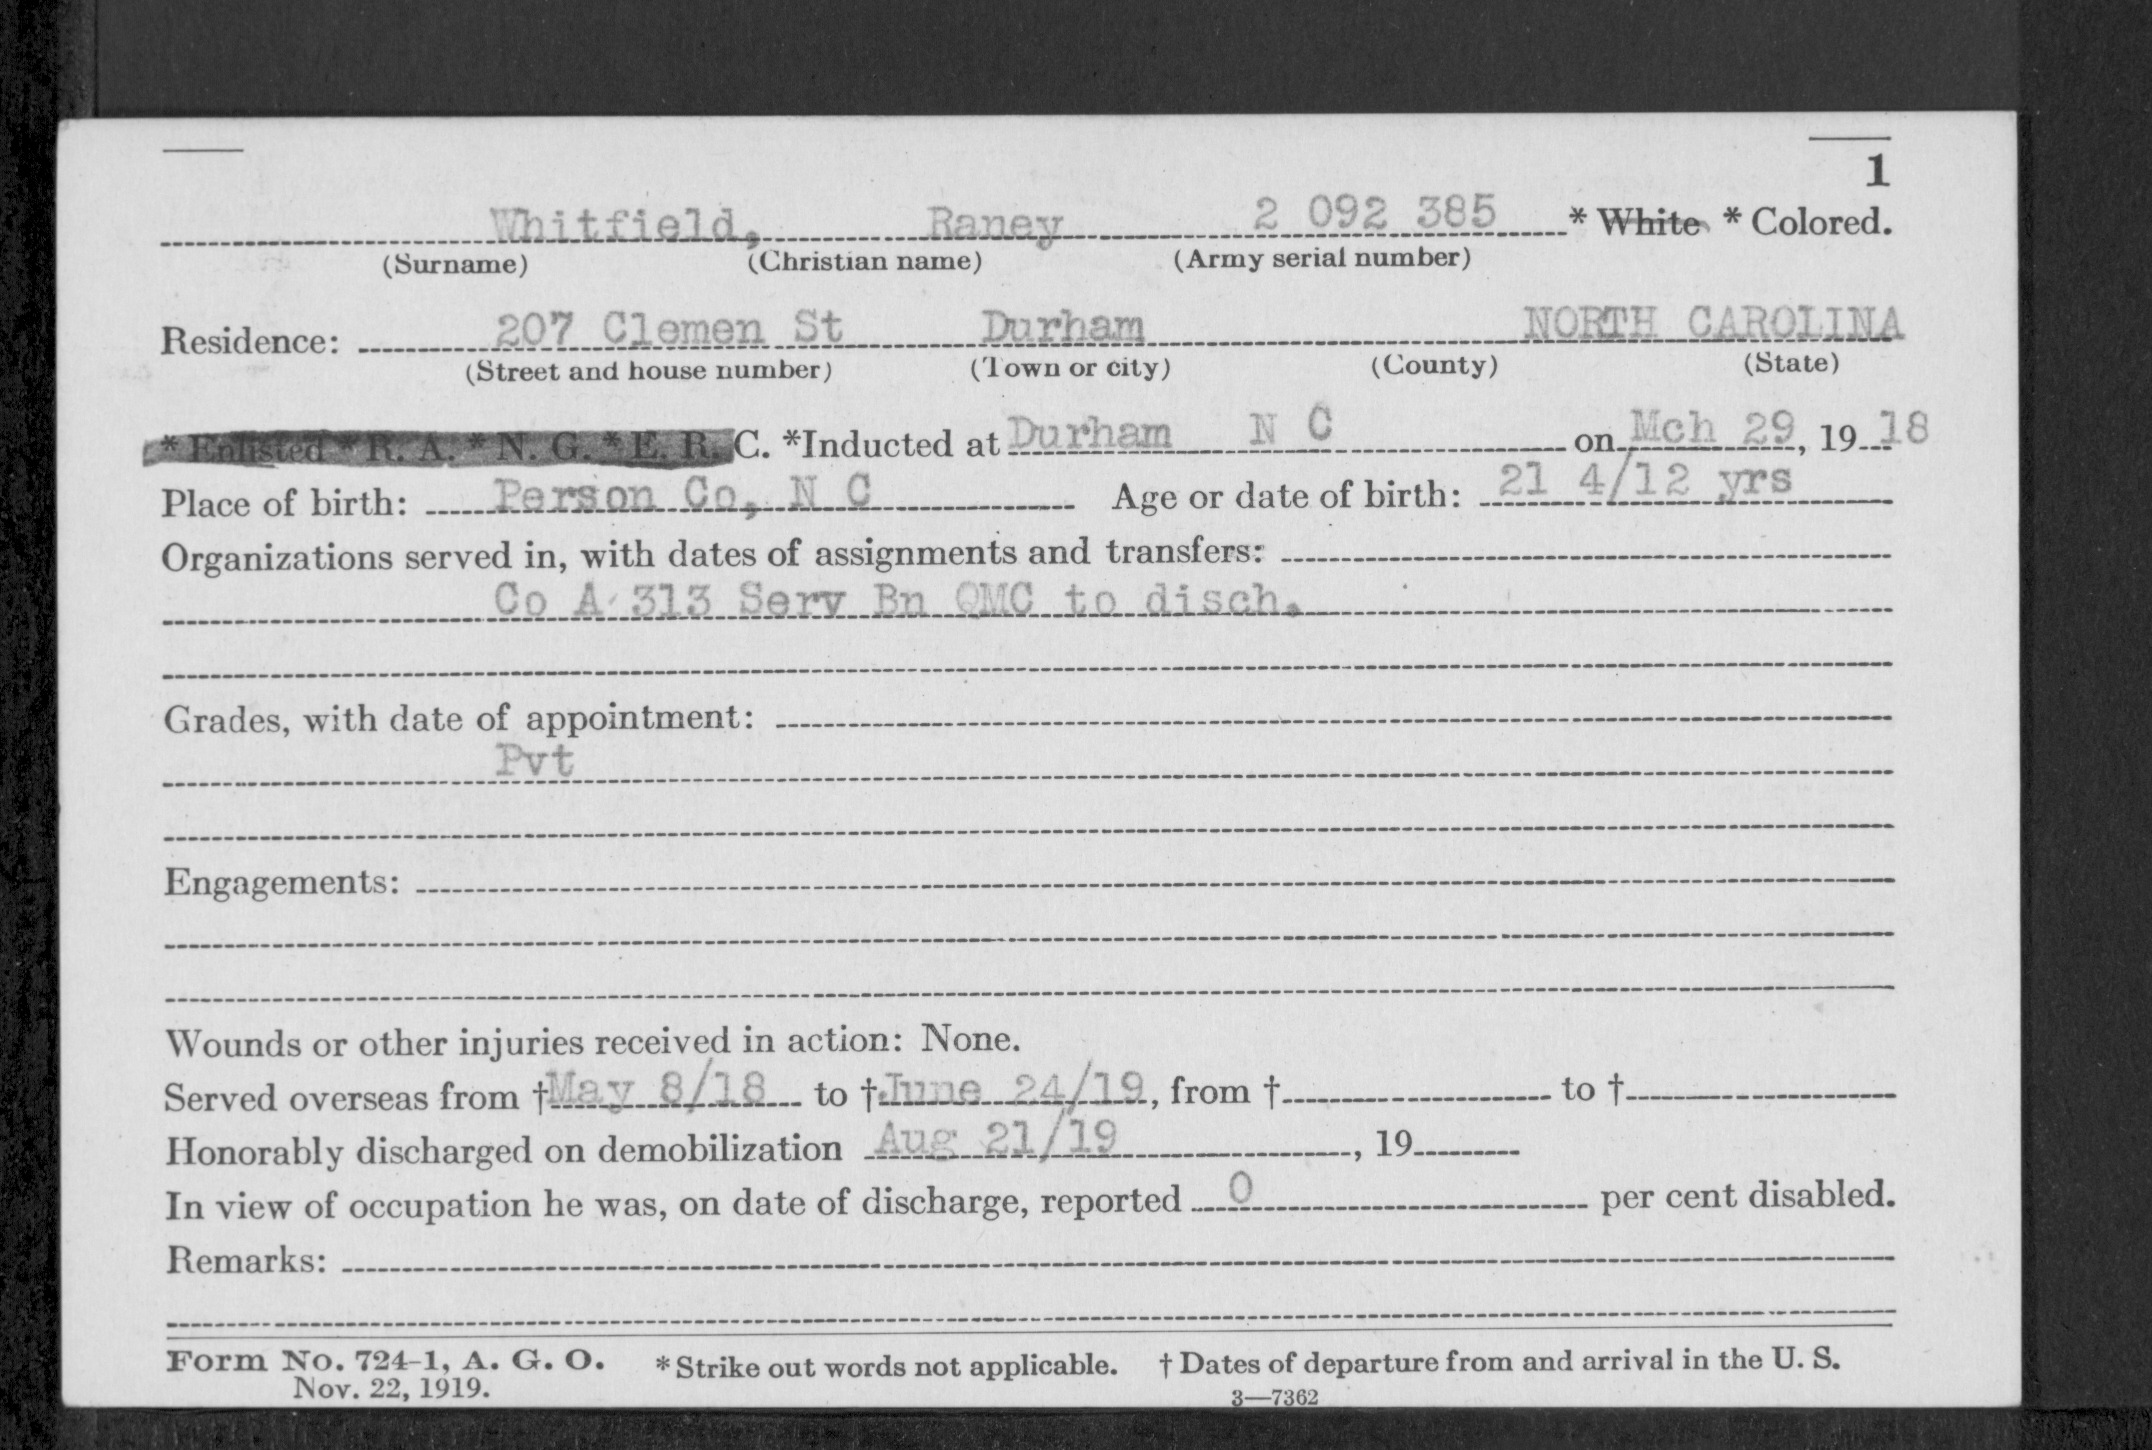 1
Whitfield, Raney 2 092 385 * White * Colored.
(Surname) (Christian name) (Army serial number)
Residence: 207 Clemen St Durham NORTH CAROLINA
(Street and house number) (Town or city) (County) (State)
* Enlisted * R. A. * N. G. * E. R. C. *Inducted at Durham N C on Mch 29, 19 18
Place of birth: Person Co, N C Age or date of birth: 21 4/12 yrs
Organizations served in, with dates of assignments and transfers:
Co A 313 Serv Bn QMC to disch.
Grades, with date of appointment:
Pvt
Engagements:
Wounds or other injuries received in action: None.
Served overseas from † May 8/18 to † June 24/19, from † to †
Honorably discharged on demobilization Aug 21/19, 19
In view of occupation he was, on date of discharge, reported 0 per cent disabled.
Remarks:
Form No. 724-1, A. G. O. * Strike out words not applicable. † Dates of departure from and arrival in the U. S.
Nov. 22, 1919. 3—7362